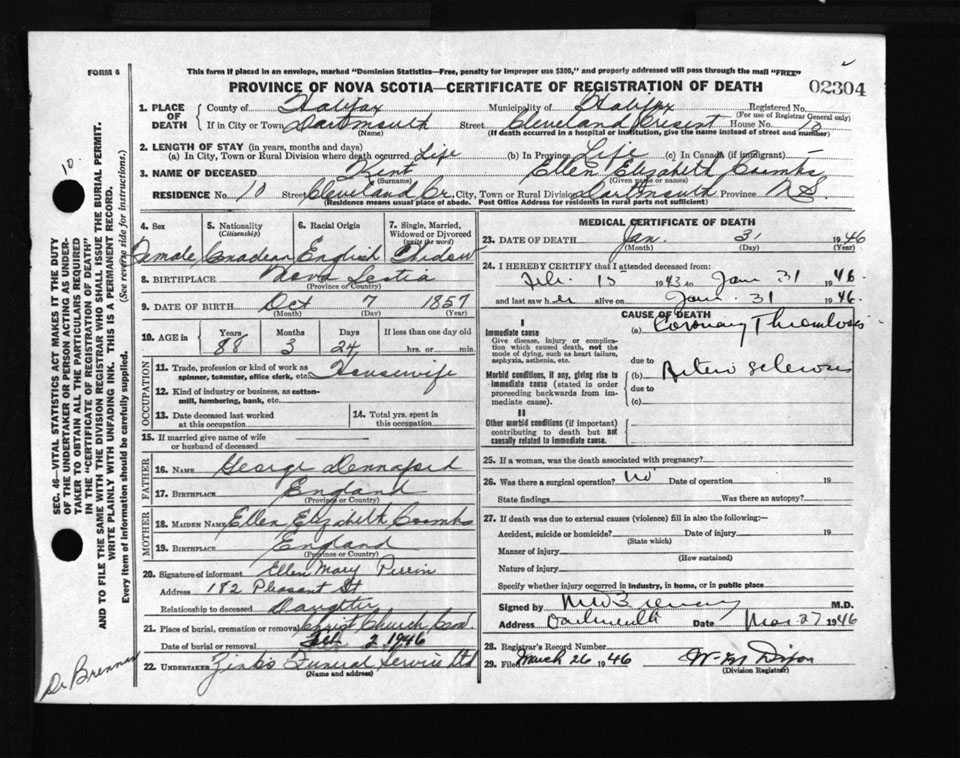 FORM 6
This form if placed in an envelope, marked "Dominion Statistics—Free, penalty for improper use $300," and properly addressed will pass through the mail "FREE"
PROVINCE OF NOVA SCOTIA—CERTIFICATE OF REGISTRATION OF DEATH
02304
1. PLACE OF DEATH
County of Halifax Municipality of Halifax Registered No.
(For use of Registrar General only)
If in City or Town Dartmouth Street Cleveland Cresent House No. 10
(Name) (If death occurred in a hospital or institution, give the name instead of street and number)
2. LENGTH OF STAY (in years, months and days)
(a) In City, Town or Rural Division where death occurred Life (b) In Province Life (c) In Canada (if immigrant) —
3. NAME OF DECEASED Kent Ellen Elizabeth Coombs
(Surname) (Given name or names)
RESIDENCE No. 10 Street Cleveland Cr. City, Town or Rural Division Dartmouth Province N S.
(Residence means usual place of abode. Post Office Address for residents in rural parts not sufficient)
4. Sex
Female
5. Nationality (Citizenship)
Canadean
6. Racial Origin
English
7. Single, Married, Widowed or Divorced (write the word)
Widow
8. BIRTHPLACE Nova Scotia
(Province or Country)
9. DATE OF BIRTH Oct 7 1857
(Month) (Day) (Year)
10. AGE in Years 88 Months 3 Days 24 If less than one day old
hrs. or min.
OCCUPATION
11. Trade, profession or kind of work as spinner, teamster, office clerk, etc. Housewife
12. Kind of industry or business, as cotton-mill, lumbering, bank, etc.
13. Date deceased last worked at this occupation
14. Total yrs. spent in this occupation
15. If married give name of wife or husband of deceased
FATHER
16. NAME George Dennaford
17. BIRTHPLACE England
(Province or Country)
MOTHER
18. MAIDEN NAME Ellen Elizabeth Coombs
19. BIRTHPLACE England
(Province or Country)
20. Signature of informant Ellen Mary Perrin
Address 182 Pleasant St
Relationship to deceased Daughter
21. Place of burial, cremation or removal Christ Church Cem.
Date of burial or removal Feb 2 1946
22. UNDERTAKER Zink's Funeral Service Ltd
(Name and address)
MEDICAL CERTIFICATE OF DEATH
23. DATE OF DEATH Jan. 31 1946
(Month) (Day) (Year)
24. I HEREBY CERTIFY that I attended deceased from:
Feb. 15 1943 to Jan 31 1946.
and last saw her alive on Jan. 31 1946.
CAUSE OF DEATH
I
Immediate cause
Give disease, injury or complication which caused death, not the mode of dying, such as heart failure, asphyxia, asthenia, etc.
(a) Coronary Thrombosis
due to
Morbid conditions, if any, giving rise to immediate cause (stated in order proceeding backwards from immediate cause).
(b) Arterio sclerosis
due to
(c)
II
Other morbid conditions (if important) contributing to death but not causally related to immediate cause.
25. If a woman, was the death associated with pregnancy?
26. Was there a surgical operation? No Date of operation 19
State findings Was there an autopsy?
27. If death was due to external causes (violence) fill in also the following:—
Accident, suicide or homicide? Date of injury 19
(State which)
Manner of injury
(How sustained)
Nature of injury
Specify whether injury occurred in industry, in home, or in public place
Signed by M.D.
Address Dartmouth Date Mar 27 1946
28. Registrar's Record Number
29. Filed March 26 1946 W. M. Dixon
(Division Registrar)
SEC. 46—VITAL STATISTICS ACT MAKES IT THE DUTY
OF THE UNDERTAKER OR PERSON ACTING AS UNDER-
TAKER TO OBTAIN ALL THE PARTICULARS REQUIRED
IN THE "CERTIFICATE OF REGISTRATION OF DEATH"
AND TO FILE THE SAME WITH THE DIVISION REGISTRAR WHO SHALL ISSUE THE BURIAL PERMIT.
WRITE PLAINLY WITH UNFADING INK. THIS IS A PERMANENT RECORD.
Every item of information should be carefully supplied. (See reverse side for instructions.)
10
Dr Brennan